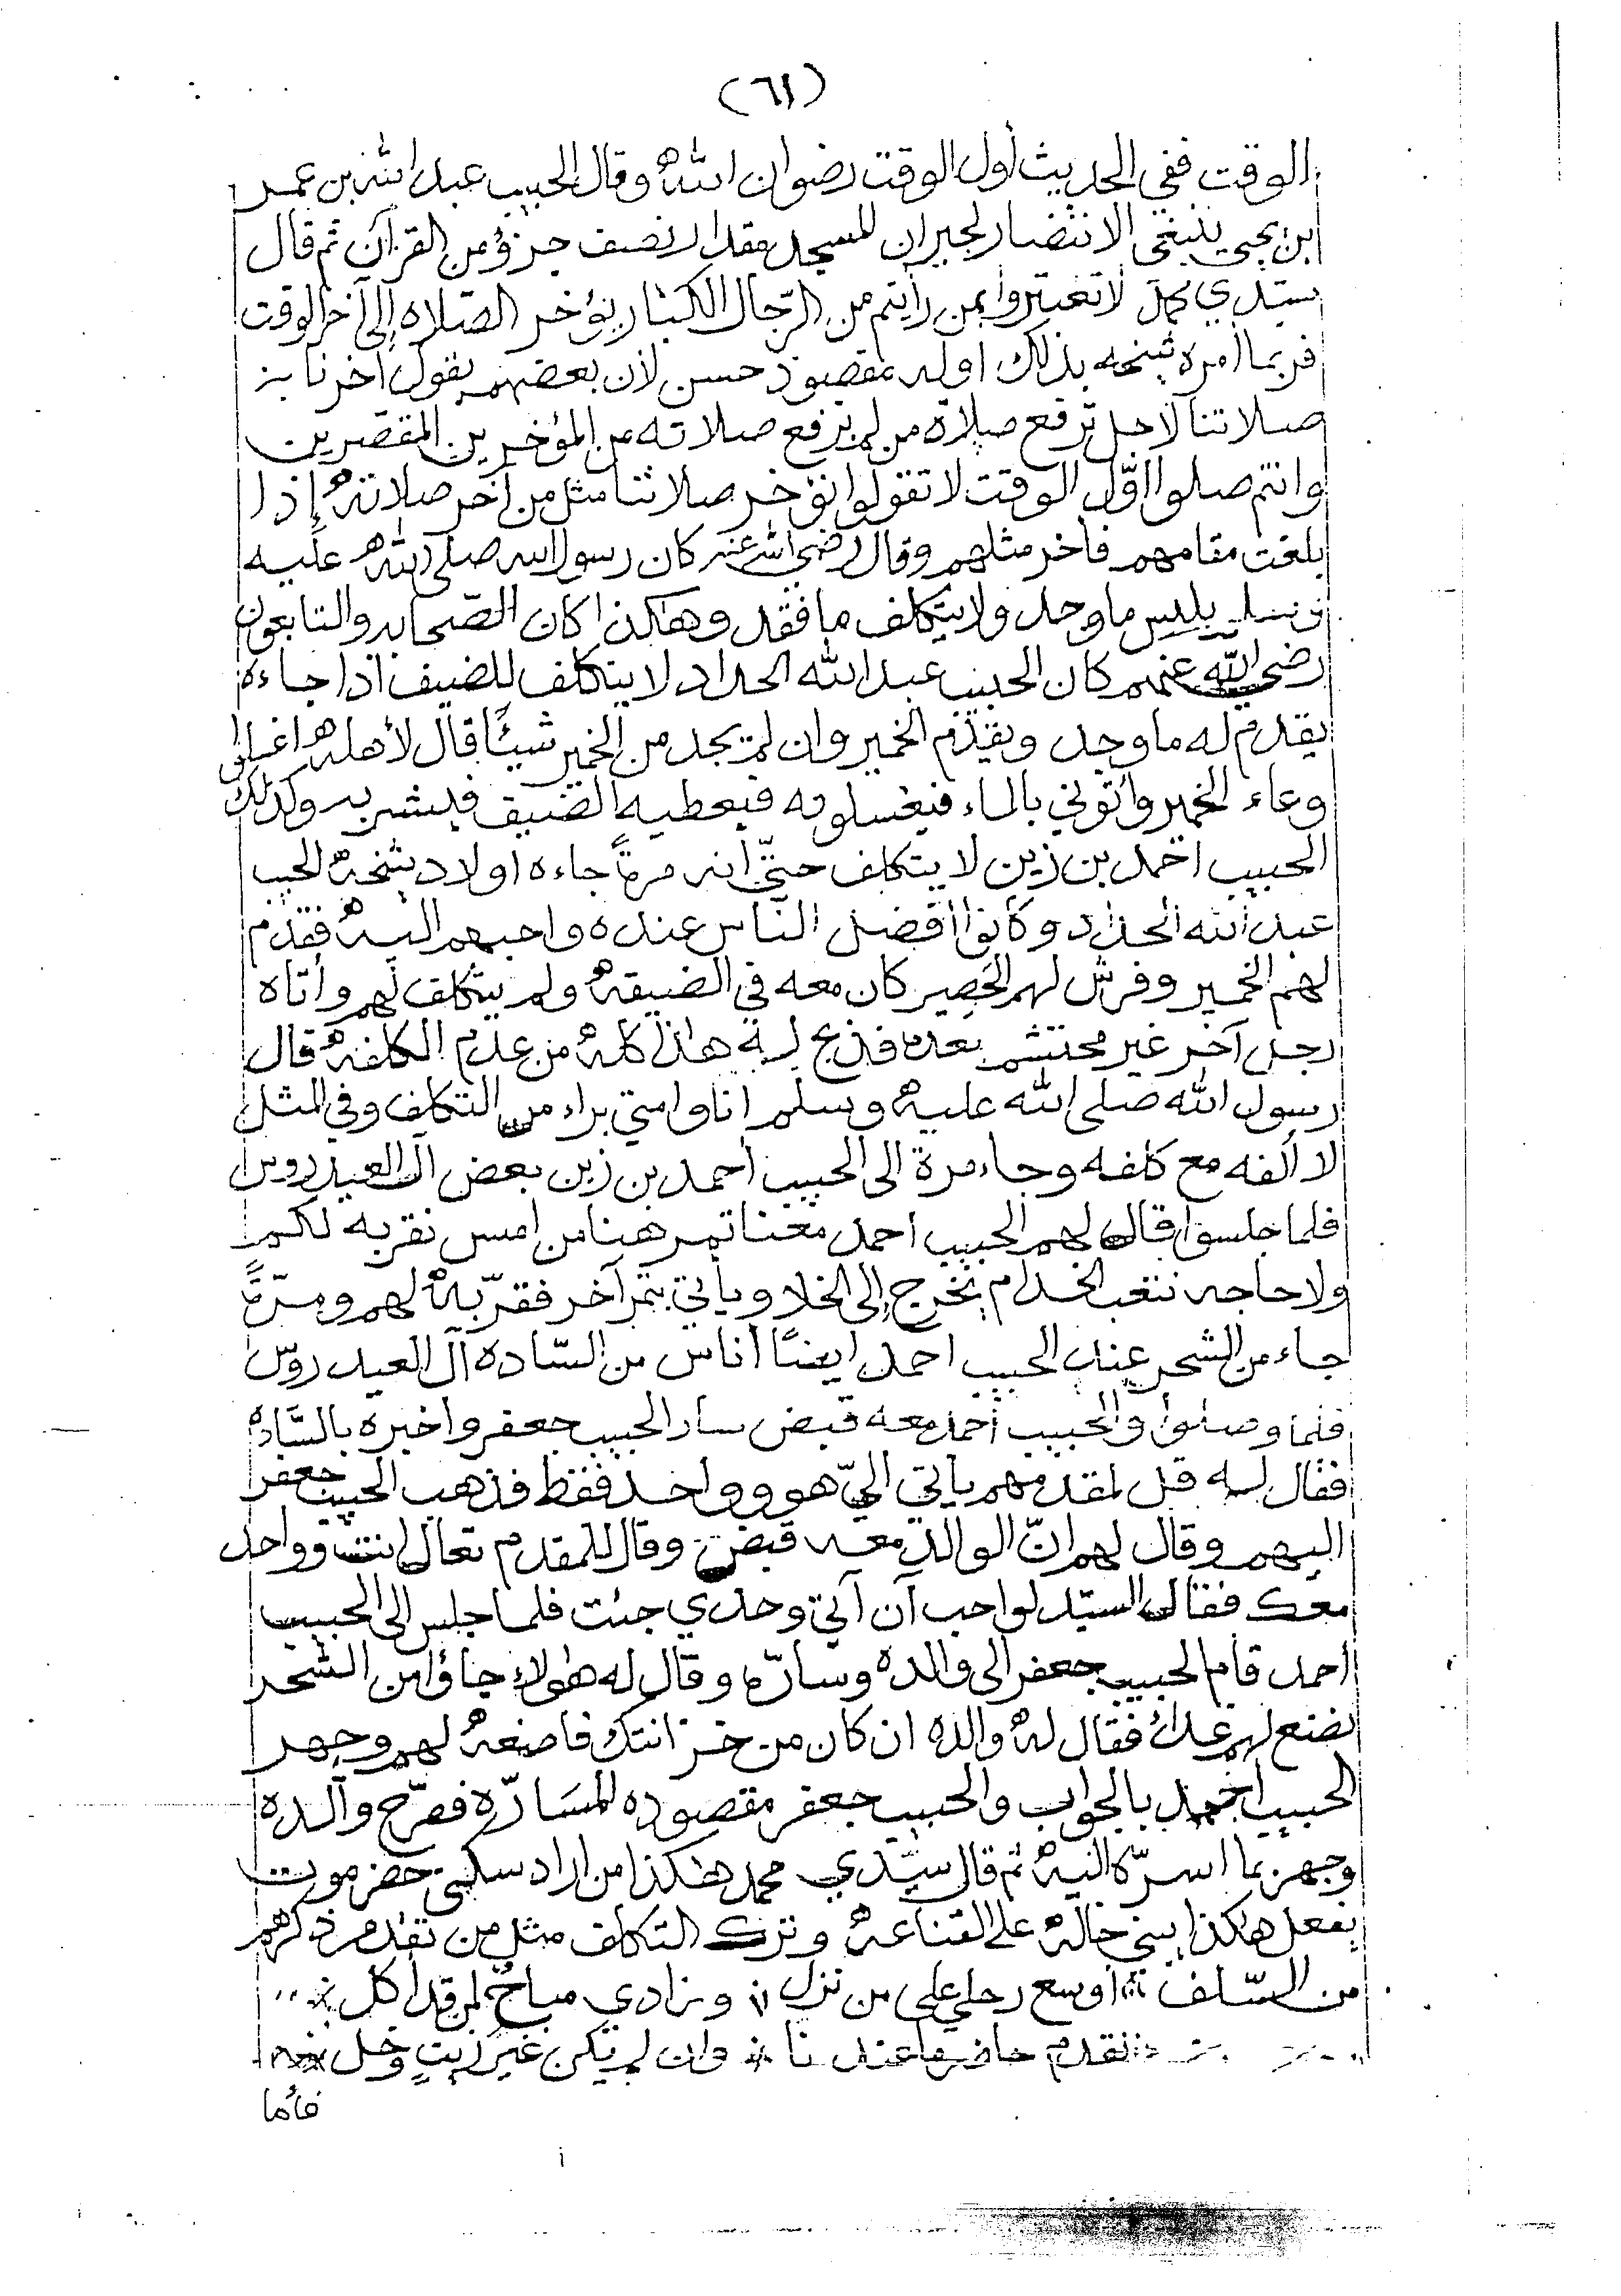 (٦١)
الوقت ففي الحديث أول الوقت رضوان الله وقال الحبيب عبد الله بن عمر
ابن يحيى ينبغي الانتضار لجيران المسجد مقدار نصف جزؤ من القرآن ثم قال
سيدي محمد لا تعتبروا بمن رأيتم من الرّجال الكبار يؤخر الصّلاه إلى آخر الوقت
فربما أمره شيخه بذلك اوله مقصود حسن لأن بعضهم يقول أخرنا
صلاتنا لاجل ترفع صلاة من لم ترفع صلاته من المؤخرين المقصرين
وانتم صلوا اوّل الوقت لا تقولوا نؤخر صلاتنا مثل من آخر صلاته إذا
بلغت مقامهم فأخر مثلهم وقال رضي الله عنه كان رسول الله صلى الله عليه
وسلم يلبس ما وجد ولا يتكلف ما فقد وهاكذا كان الصّحابه والتابعون
رضي الله عنهم كان الحبيب عبد الله الحداد لا يتكلف للضيف اذا جاءه
يقدم له ما وجد ويقدّم الخمير وان لم يجد من الخمير شيئًا قال لأهله اغسلوا
وعاء الخمير وأتوني بالماء فيغسلونه فيعطيه الضيف فيشربه وكذلك
الحبيب احمد بن زين لا يتكلف حتّى أنه مرةً جاءه اولاد شيخه الحبيب
عبد الله الحداد وكانوا أفضل الناس عنده واحبهم اليه فقدم
لهم الخمير وفرش لهم الحَصِير كان معه في الضيقه ولم يتكلف لهم وأتاه
رجل آخر غير محتشم بعده فذبح له هاذا كله من عدم الكلفه قال
رسول الله صلى الله عليه وسلم انا وامتي براء من التكلف وفي المثل
لا ألفه مع كلفه وجاء مرة الى الحبيب أحمد بن زين بعض آل العيدروس
فلما جلسوا قال لهم الحبيب احمد معنا تمر هنا من امس نقربه لكم
ولا حاجه نتعب الخدام يخرج إلى الخلا ويأتي بتمر آخر فقرّبه لهم ومرّةً
جاء من الشحر عند الحبيب احمد ايضًا أناس من السّاده آل العيدروس
فلما وصلوا والحبيب أحمد معه قبض سار الحبيب جعفر واخبره بالسَّاده
فقال له قل لمقدمهم يأتي اليّ هو وواحد فقط فذهب الحبيب جعفر
اليهم وقال لهم انّ الوالد معه قبض وقال للمقدم تعال انت وواحد
معك فقال السيّد لو احب آن آتي وحدي جئت فلما جلس الى الحبيب
أحمد قام الحبيب جعفر الى والده وسارّه وقال له هؤلاء جاؤا من الشحر
نصنع لهم غداء فقال له والده ان كان من خزانتك فاصنعه لهم وجهر
الحبيب أحمد بالجواب والحبيب جعفر مقصوده المسَارّه ففرّح وآلده
وجهر بما اسرّه اليه ثم قال سيّدي محمد هاكذا من اراد سكنى حضرموت
يفعل هاكذا يبني حاله على القناعه وترك التكلف مثل من تقدم ذكرهم
من السّلف ؛ أوسع رحلي على من نزل ؛ وزادي مباحٌ لمن قد أكل
نقدم حاضر ما عندنا ؛ وان لم يكن غيرُ زيتٍ وخل
فأما